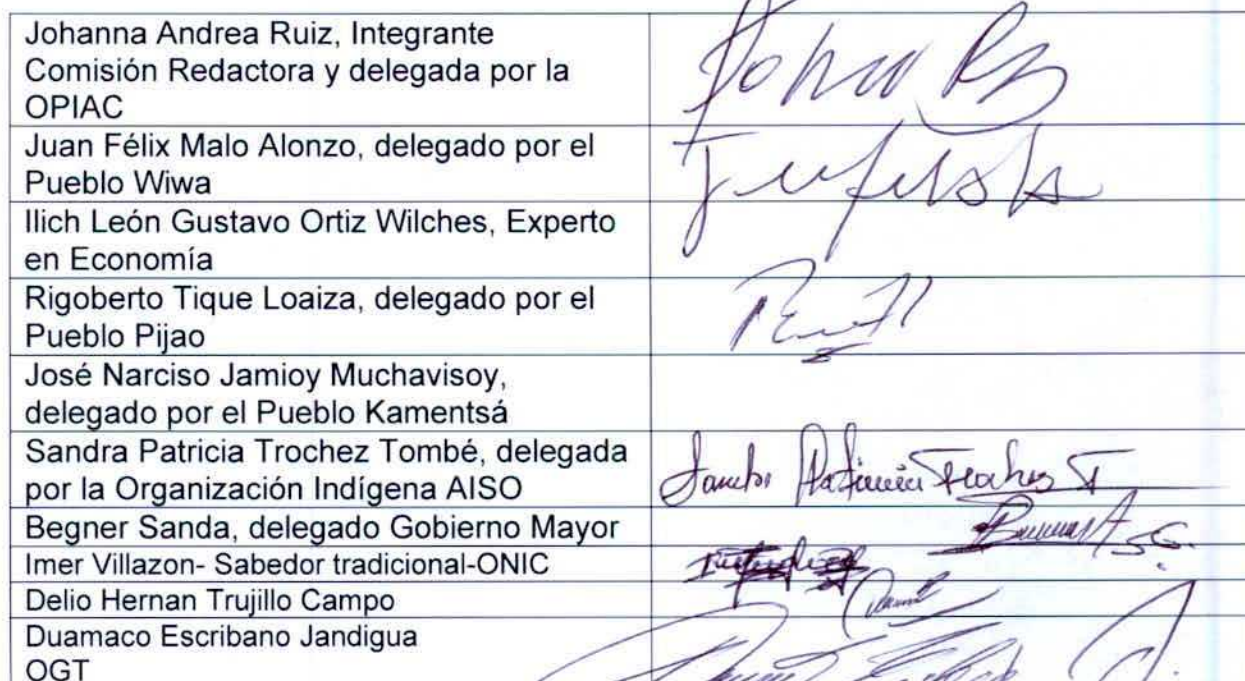 Johanna Andrea Ruiz, Integrante
Comisión Redactora y delegada por la
OPIAC
Juan Félix Malo Alonzo, delegado por el
Pueblo Wiwa
Ilich León Gustavo Ortiz Wilches, Experto
en Economía
Rigoberto Tique Loaiza, delegado por el
Pueblo Pijao
José Narciso Jamioy Muchavisoy,
delegado por el Pueblo Kamentsá
Sandra Patricia Trochez Tombé, delegada
por la Organización Indígena AISO
Sandra Patricia Trochez T
Begner Sanda, delegado Gobierno Mayor
Imer Villazon- Sabedor tradicional-ONIC
Delio Hernan Trujillo Campo
Duamaco Escribano Jandigua
OGT